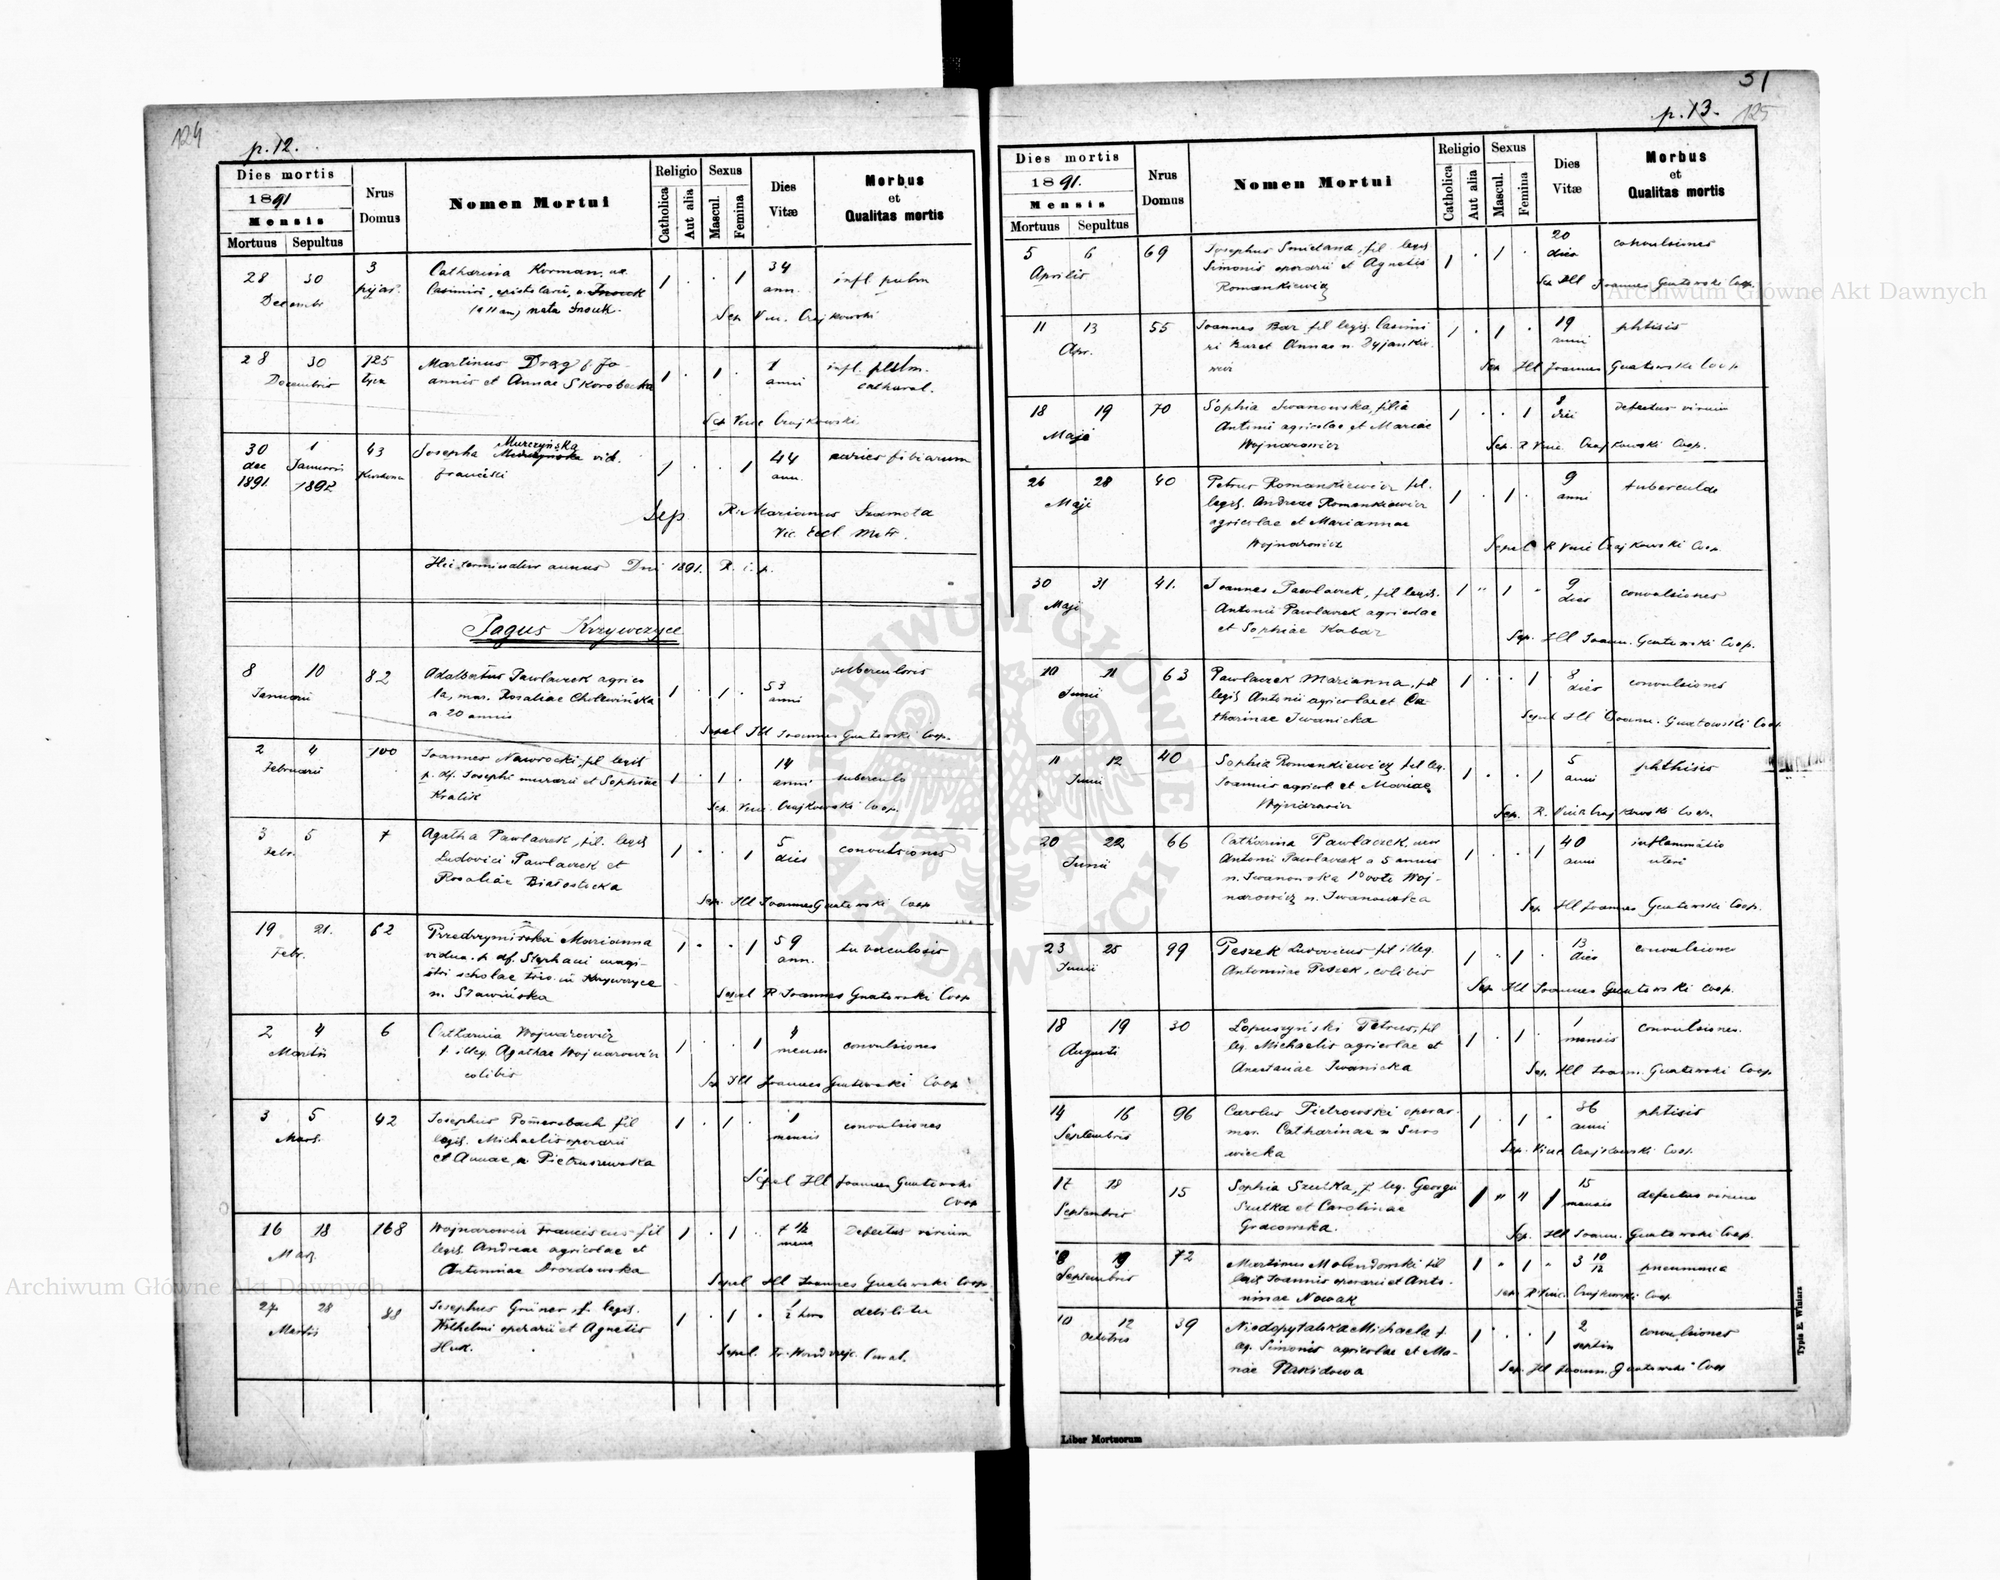 124
p. 12.
Dies mortis
1891
Mensis
Mortuus Sepultus
Nrus Domus
Nomen Mortui
Religio
Catholica
Aut alia
Sexus
Mascul.
Femina
Dies Vitæ
Morbus et Qualitas mortis
28 30 3 Catharina Korman, 1 1 34 infl. pulm
Decembr. Casimiri, ann.
nata Snouk.
Sep Vinc. Czajkowski
28 30 125 Martinus Drąg f. Jo- 1 1 1 infl. pulm.
Decembris annis et Annae Skorobecka anni catharal.
Sep Vinc Czajkowski
30 1 43 Josepha Murczyńska vid. 1 1 44 caries tibiarum
dec Januarii Francisci ann.
1891. 1892
Sep. R. Marianus Szamota
Vic. Eccl. Metr.
Hic terminatur annus Dni 1891. R. i. p.
Pagus Krzywczyce
8 10 82 Adalbertus Pawlaczek agrico 1 1 53 tuberculosis
Januarii la, mar. Rosaliae Cholewińska anni
a 20 annis
Sepel Joannes Gnatowski Coop.
2 4 100 Joannes Nawrocki, fil legit 1 1 14
Februarii p. df. Josephi murarii et Sophiae anni tuberculo
Kralik
Sep. Vinc. Czajkowski Coop.
3 5 7 Agatha Pawlaczek, fil. legit 1 1 5 convulsiones
Febr. Ludovici Pawlaczek et dies
Rosaliae Białostocka
Sep. Joannes Gnatowski Coop
19 21. 62 Przedrzymirska Marianna 1 1 59 tuberculosis
Febr. vidua p. df. Stephani magi- ann.
stri scholae triv. in Krzywczyce
n. Sławińska
Sepel R. Joannes Gnatowski Coop
2 4 6 Catharina Wojnarowicz 1 1 4 convulsiones
Martii f. illeg. Agathae Wojnarowicz menses
celibis
Sep Joannes Gnatowski Coop
3 5 42 Josephus Pomersbach fil 1 1 1 convulsiones
Mart. legit. Michaelis operarii mensis
et Annae n Pietruszewska
Sepel Joannes Gnatowski
Coop
16 18 168 Wojnarowicz Franciscus fil 1 1 7 1/2 Defectus virium
Mart. legit. Andreae agricolae et mens
Antoninae Drozdowska
Sepel Joannes Gnatowski Coop.
27. 28 88 Josephus Grüner f. legit. 1 1 1/2 hora debilitas
Martii Wilhelmi operarii et Agnetis
Huk.
Sepel.
31
p. 13. 125
Dies mortis
1891.
Mensis
Mortuus Sepultus
Nrus Domus
Nomen Mortui
Religio
Catholica
Aut alia
Sexus
Mascul.
Femina
Dies Vitæ
Morbus et Qualitas mortis
5 6 69 Josephus Smieland, fil legit 1 1 20 convulsiones
Aprilis Simonis operarii et Agnetis dies
Romankiewicz
Sep Joannes Gnatowski Coop.
11 13 55 Joannes Bar fil legit. Casimi 1 1 19 phtisis
Apr. ri Bar et Annae n. anni
Sep Joannes Gnatowski Coop
18 19 70 Sophia Iwanowska, filia 1 1 8 defectus virium
Maji Antonii agricolae et Mariae dies
Wojnarowicz
Sep. R Vinc. Czajkowski Coop.
26 28 40 Petrus Romankiewicz fil. 1 1 9 tuberculos
Maji legit. Andreae Romankiewicz anni
agricolae et Mariannae
Wojnarowicz
Sepel R Vinc Czajkowski Coop.
30 31 41. Joannes Pawlaczek, fil legit. 1 1 9 convulsiones
Maji Antonii Pawlaczek agricolae dies
et Sophiae Kabar
Sep. Joann. Gnatowski Coop.
10 11 63 Pawlaczek Marianna, fil 1 1 8 convulsiones
Junii legit Antonii agricolae et Ca dies
tharinae Iwanicka
Sepel Joann. Gnatowski Coop
11 12 40 Sophia Romankiewicz fil leg. 1 1 5 phthisis
Junii Joannis agricol et Mariae anni
Wojnarowicz
Sep. R. Vinc Czajkowski Coop.
20 22 66 Catharina Pawlaczek uxor 1 1 40 inflammatio
Junii Antonii Pawlaczek a 5 annis anni uteri
n. Iwanowska 1º voto Woj-
narowicz n. Iwanowska
Sep Joannes Gnatowski Coop.
23 25 99 Peszek Ludovicus fil illeg. 1 1 13 convulsiones
Junii Antoninae Peszek, celibis dies
Sep Joannes Gnatowski Coop.
18 19 30 Łopuszyński Petrus, fil 1 1 1 convulsiones.
Augusti leg. Michaelis agricolae et mensis
Anastasiae Iwanicka
Sep. Joann. Gnatowski Coop.
14 16 96 Carolus Pietrowski operar. 1 1 36 phtisis
Septembris mar. Catharinae n Suro anni
wiecka
Sep. Vinc Czajkowski Coop.
17 18 15 Sophia Szutka, f. leg. Georgii 1 " " 1 15 defectus virium
Septembris Szutka et Carolinae mensis
Gracowska.
Sep. Joann. Gnatowski Coop.
18 19 72 Martinus Molendowski fil 1 1 3 10/12 pneumonia
Septembris legit Joannis operarii et Anto-
ninae Nowak
Sep. R Vinc. Czajkowski Coop
10 12 39 Niedopytalska Michaela f. 1 1 2 convulsiones
Octobris leg. Simonis agricolae et Ma- septim
riae Plakidowa
Sep. Joann. Gnatowski Coop
Typis E. Winiarz
Liber Mortuorum
Archiwum Główne Akt Dawnych
Archiwum Główne Akt Dawnych
ARCHIWUM GŁÓWNE AKT DAWNYCH